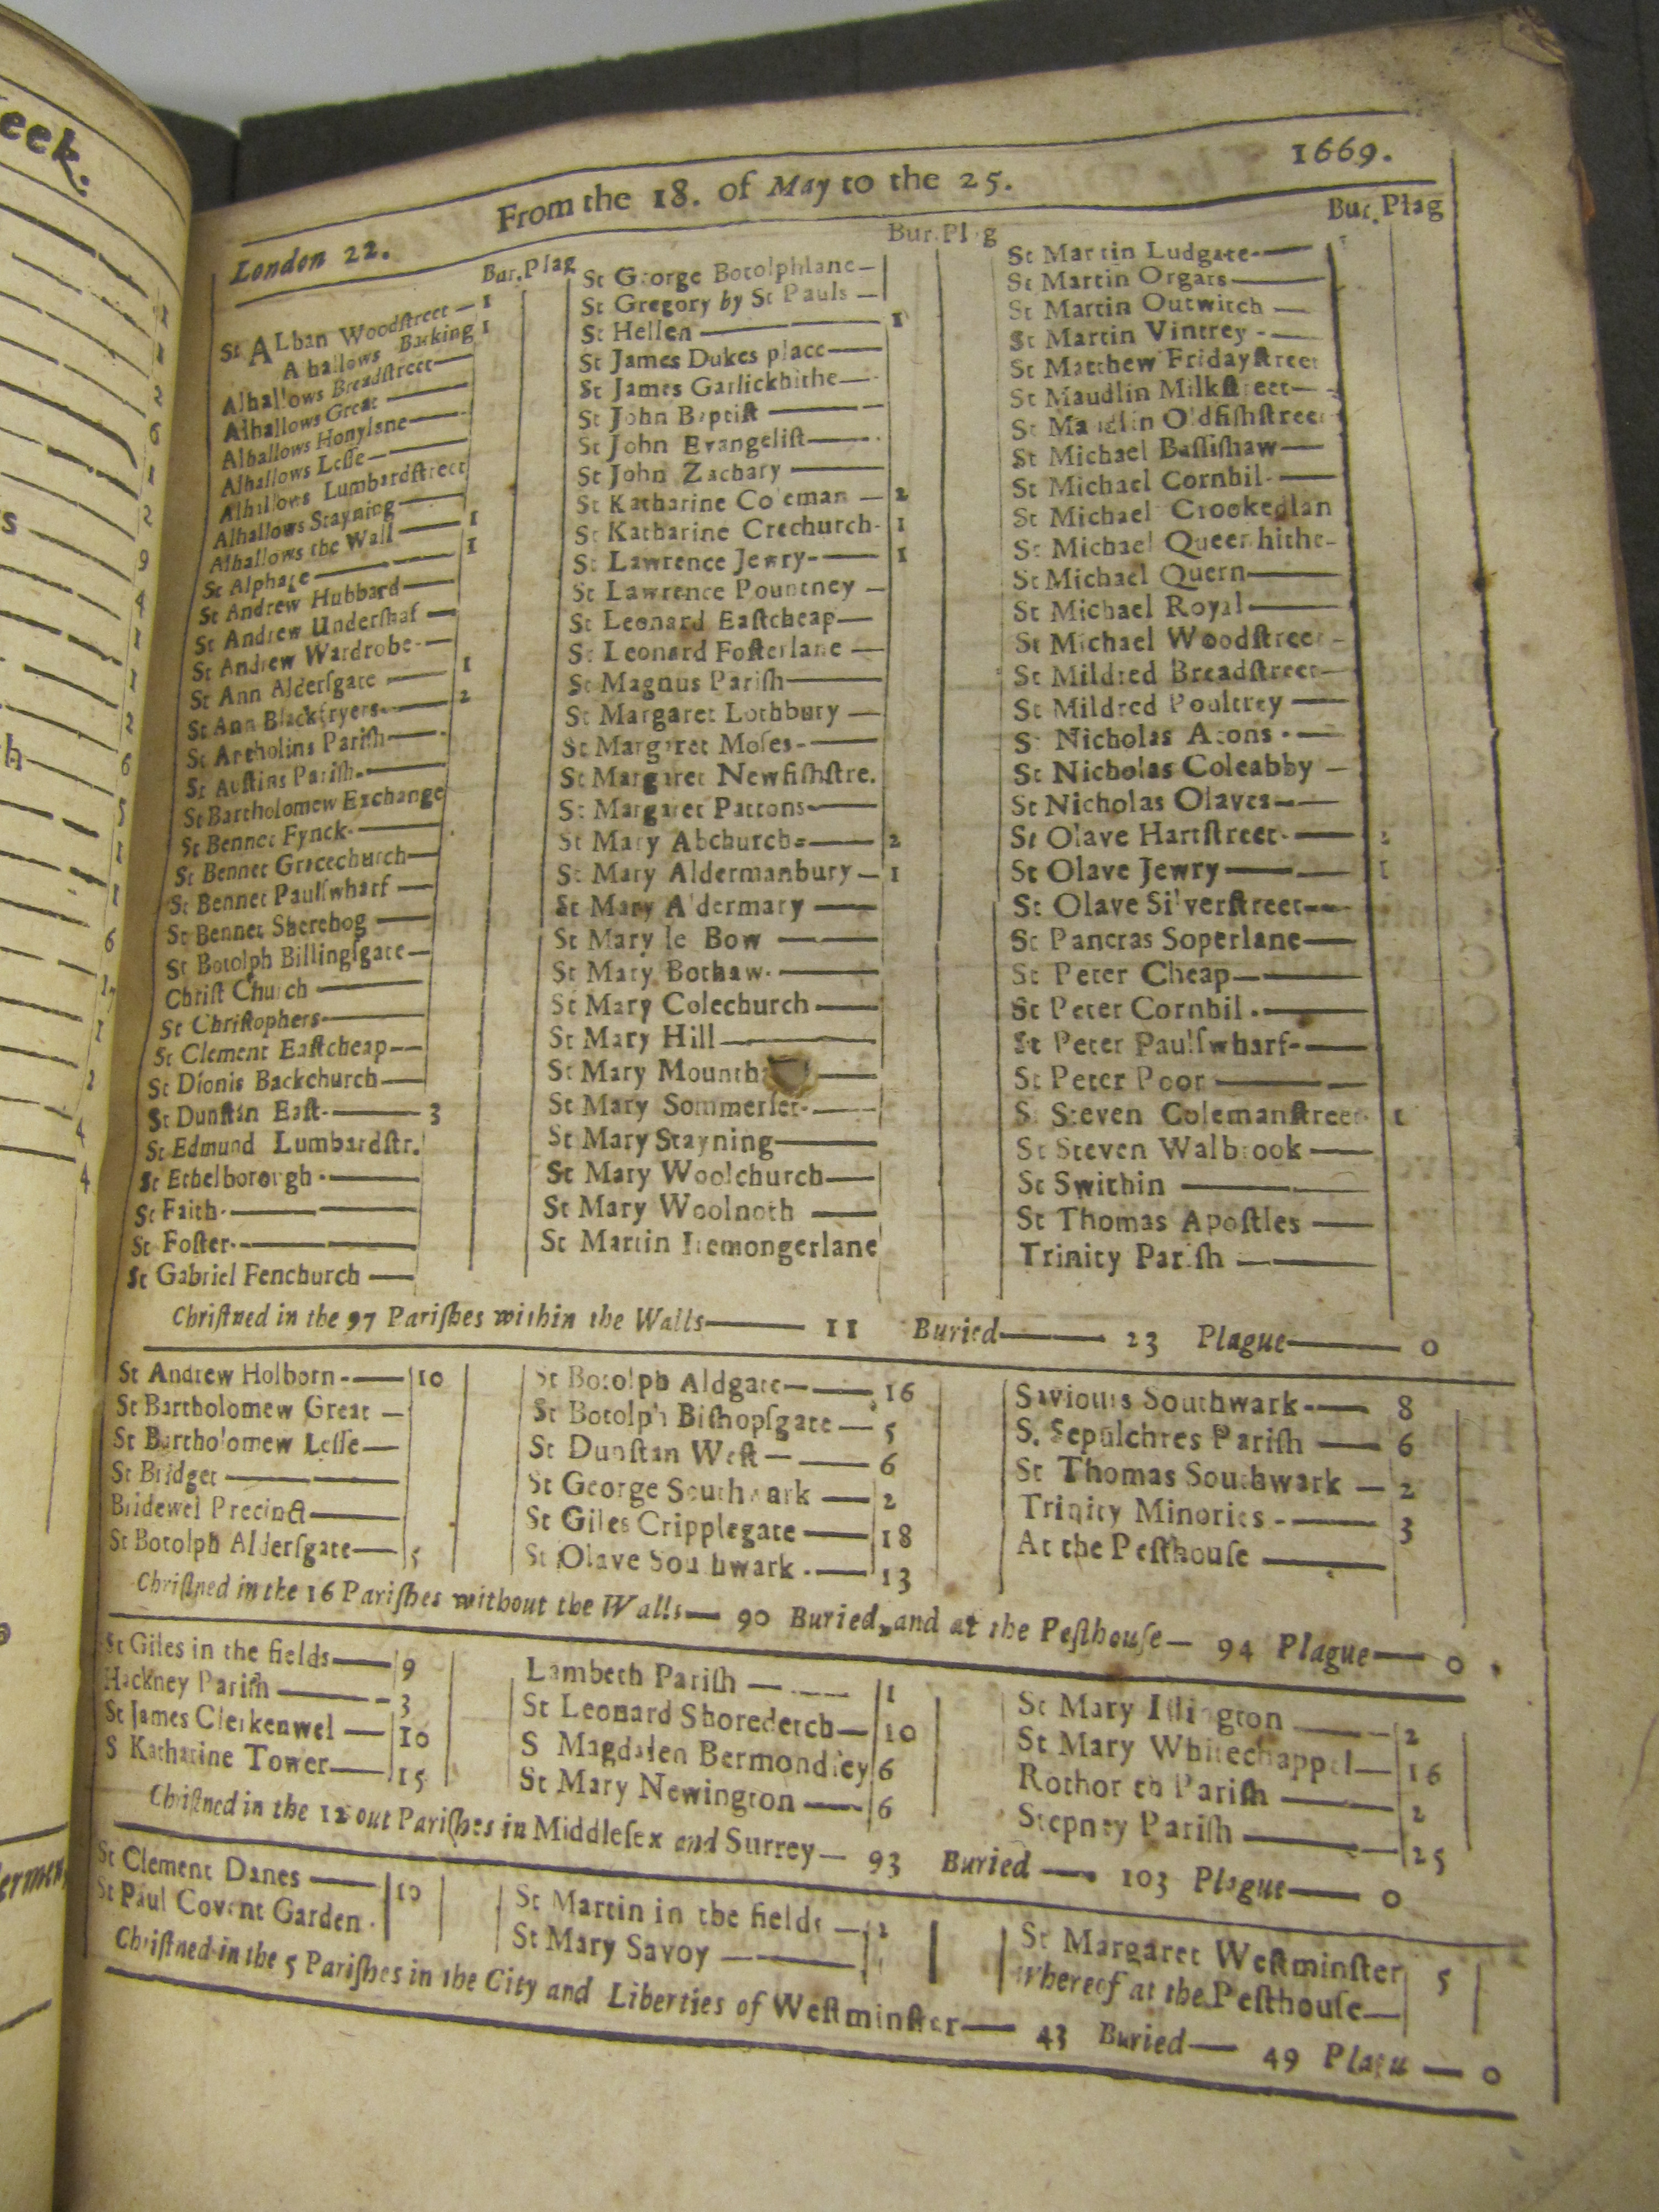 eek.
London 22. From the 18. of May to the 25. 1669.
Bur. Plag
St ALban Woodſtreet — 1
Alhallows Barking 1
Alhallows Breadſtreet —
Alhallows Great —
Alhallows Honylane —
Alhallows Leſſe —
Alhallows Lumbardſtreet
Alhallows Stayning —
Alhallows the Wall — 1
St Alphage — 1
St Andrew Hubbard —
St Andrew Underſhaf —
St Andrew Wardrobe —
St Ann Alderſgate — 1
St Ann Blackfryers — 2
St Antholins Pariſh —
St Auſtins Pariſh —
St Bartholomew Exchange
St Bennet Fynck —
St Bennet Gracechurch —
St Bennet Paulſwharf —
St Bennet Sherehog —
St Botolph Billingſgate —
Chriſt Church —
St Chriſtophers —
St Clement Eaſtcheap —
St Dionis Backchurch —
St Dunſtan Eaſt — 3
St Edmund Lumbardſtr.
St Ethelborough —
St Faith —
St Foſter —
St Gabriel Fenchurch —
Bur. Plag
St George Botolphlane —
St Gregory by St Pauls —
St Hellen — 1
St James Dukes place —
St James Garlickhithe —
St John Baptiſt —
St John Evangeliſt —
St John Zachary —
St Katharine Coleman — 2
St Katharine Crechurch - 1
St Lawrence Jewry — 1
St Lawrence Pountney —
St Leonard Eaſtcheap —
St Leonard Foſterlane —
St Magnus Pariſh —
St Margaret Lothbury —
St Margaret Moſes —
St Margaret Newfiſhſtre.
St Margaret Pattons —
St Mary Abchurch — 2
St Mary Aldermanbury — 1
St Mary Aldermary —
St Mary le Bow —
St Mary Bothaw —
St Mary Colechurch —
St Mary Hill —
St Mary Mounth —
St Mary Sommerſet —
St Mary Stayning —
St Mary Woolchurch —
St Mary Woolnoth —
St Martin Iremongerlane
Bur. Plag
St Martin Ludgate —
St Martin Orgars —
St Martin Outwitch —
St Martin Vintrey —
St Matthew Fridayſtreet
St Maudlin Milkſtreet —
St Maudlin Oldfiſhſtreet
St Michael Baſſiſhaw —
St Michael Cornhil —
St Michael Crookedlan
St Michael Queenhithe -
St Michael Quern —
St Michael Royal —
St Michael Woodſtreet -
St Mildred Breadſtreet —
St Mildred Poultrey —
St Nicholas Acons —
St Nicholas Coleabby —
St Nicholas Olaves —
St Olave Hartſtreet — 2
St Olave Jewry — 1
St Olave Silverſtreet —
St Pancras Soperlane —
St Peter Cheap —
St Peter Cornhil —
St Peter Paulſwharf —
St Peter Poor —
St Steven Colemanſtreet 1
St Steven Walbrook —
St Swithin —
St Thomas Apoſtles —
Trinity Pariſh —
Chriſtned in the 97 Pariſhes within the Walls — 11 Buried — 23 Plague — 0
St Andrew Holborn — 10
St Bartholomew Great —
St Bartholomew Leſſe —
St Bridget —
Bridewel Precinct —
St Botolph Alderſgate — 5
St Botolph Aldgate — 16
St Botolph Biſhopſgate — 5
St Dunſtan Weſt — 6
St George Southwark — 2
St Giles Cripplegate — 18
St Olave Southwark — 13
Saviours Southwark — 8
S. Sepulchres Pariſh — 6
St Thomas Southwark — 2
Trinity Minories — 3
At the Peſthouſe —
Chriſtned in the 16 Pariſhes without the Walls — 90 Buried, and at the Peſthouſe — 94 Plague — 0
St Giles in the fields — 9
Hackney Pariſh — 3
St James Clerkenwel — 10
S Katharine Tower — 15
Lambeth Pariſh — 1
St Leonard Shoreditch — 10
S Magdalen Bermondſey 6
St Mary Newington — 6
St Mary Iſlington — 2
St Mary Whitechappel — 16
Rothorth Pariſh — 2
Stepney Pariſh — 25
Chriſtned in the 12 out Pariſhes in Middleſex and Surrey — 93 Buried — 103 Plague — 0
St Clement Danes — 10
St Paul Covent Garden
St Martin in the fields — 2
St Mary Savoy —
St Margaret Weſtminſter 5
whereof at the Peſthouſe —
Chriſtned in the 5 Pariſhes in the City and Liberties of Weſtminſter — 43 Buried — 49 Plague — 0